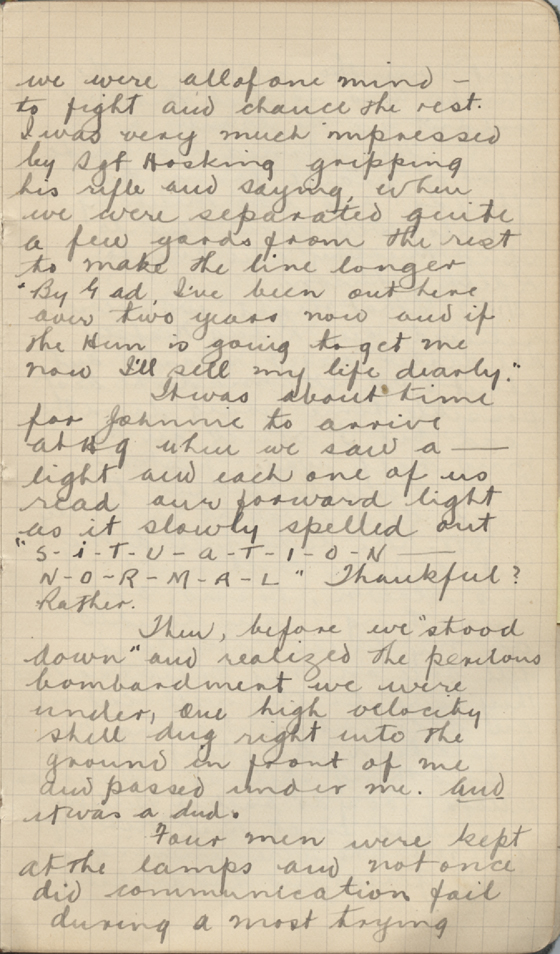 we were all of one mind –
to fight and chance the rest.
I was very much impressed
by Sgt Hosking gripping
his rifle and saying, when
we were separated quite
a few yards from the rest
to make the line longer
"By Gad, I've been out here
over two years now and if
the Hun is going to get me
now I'll sell my life dearly."
It was about time
for Johnnie to arrive
at Hq when we saw a —
light and each one of us
read our forward light
as it slowly spelled out
"S-i-T-U-A-T-I-O-N —
N-O-R-M-A-L" Thankful?
Rather.
Then, before we "stood
down" and realized the perilous
bombardment we were
under, one high velocity
shell dug right into the
ground in front of me
and passed under me. And
it was a dud.
Four men were kept
at the lamps and not once
did communication fail
during a most trying